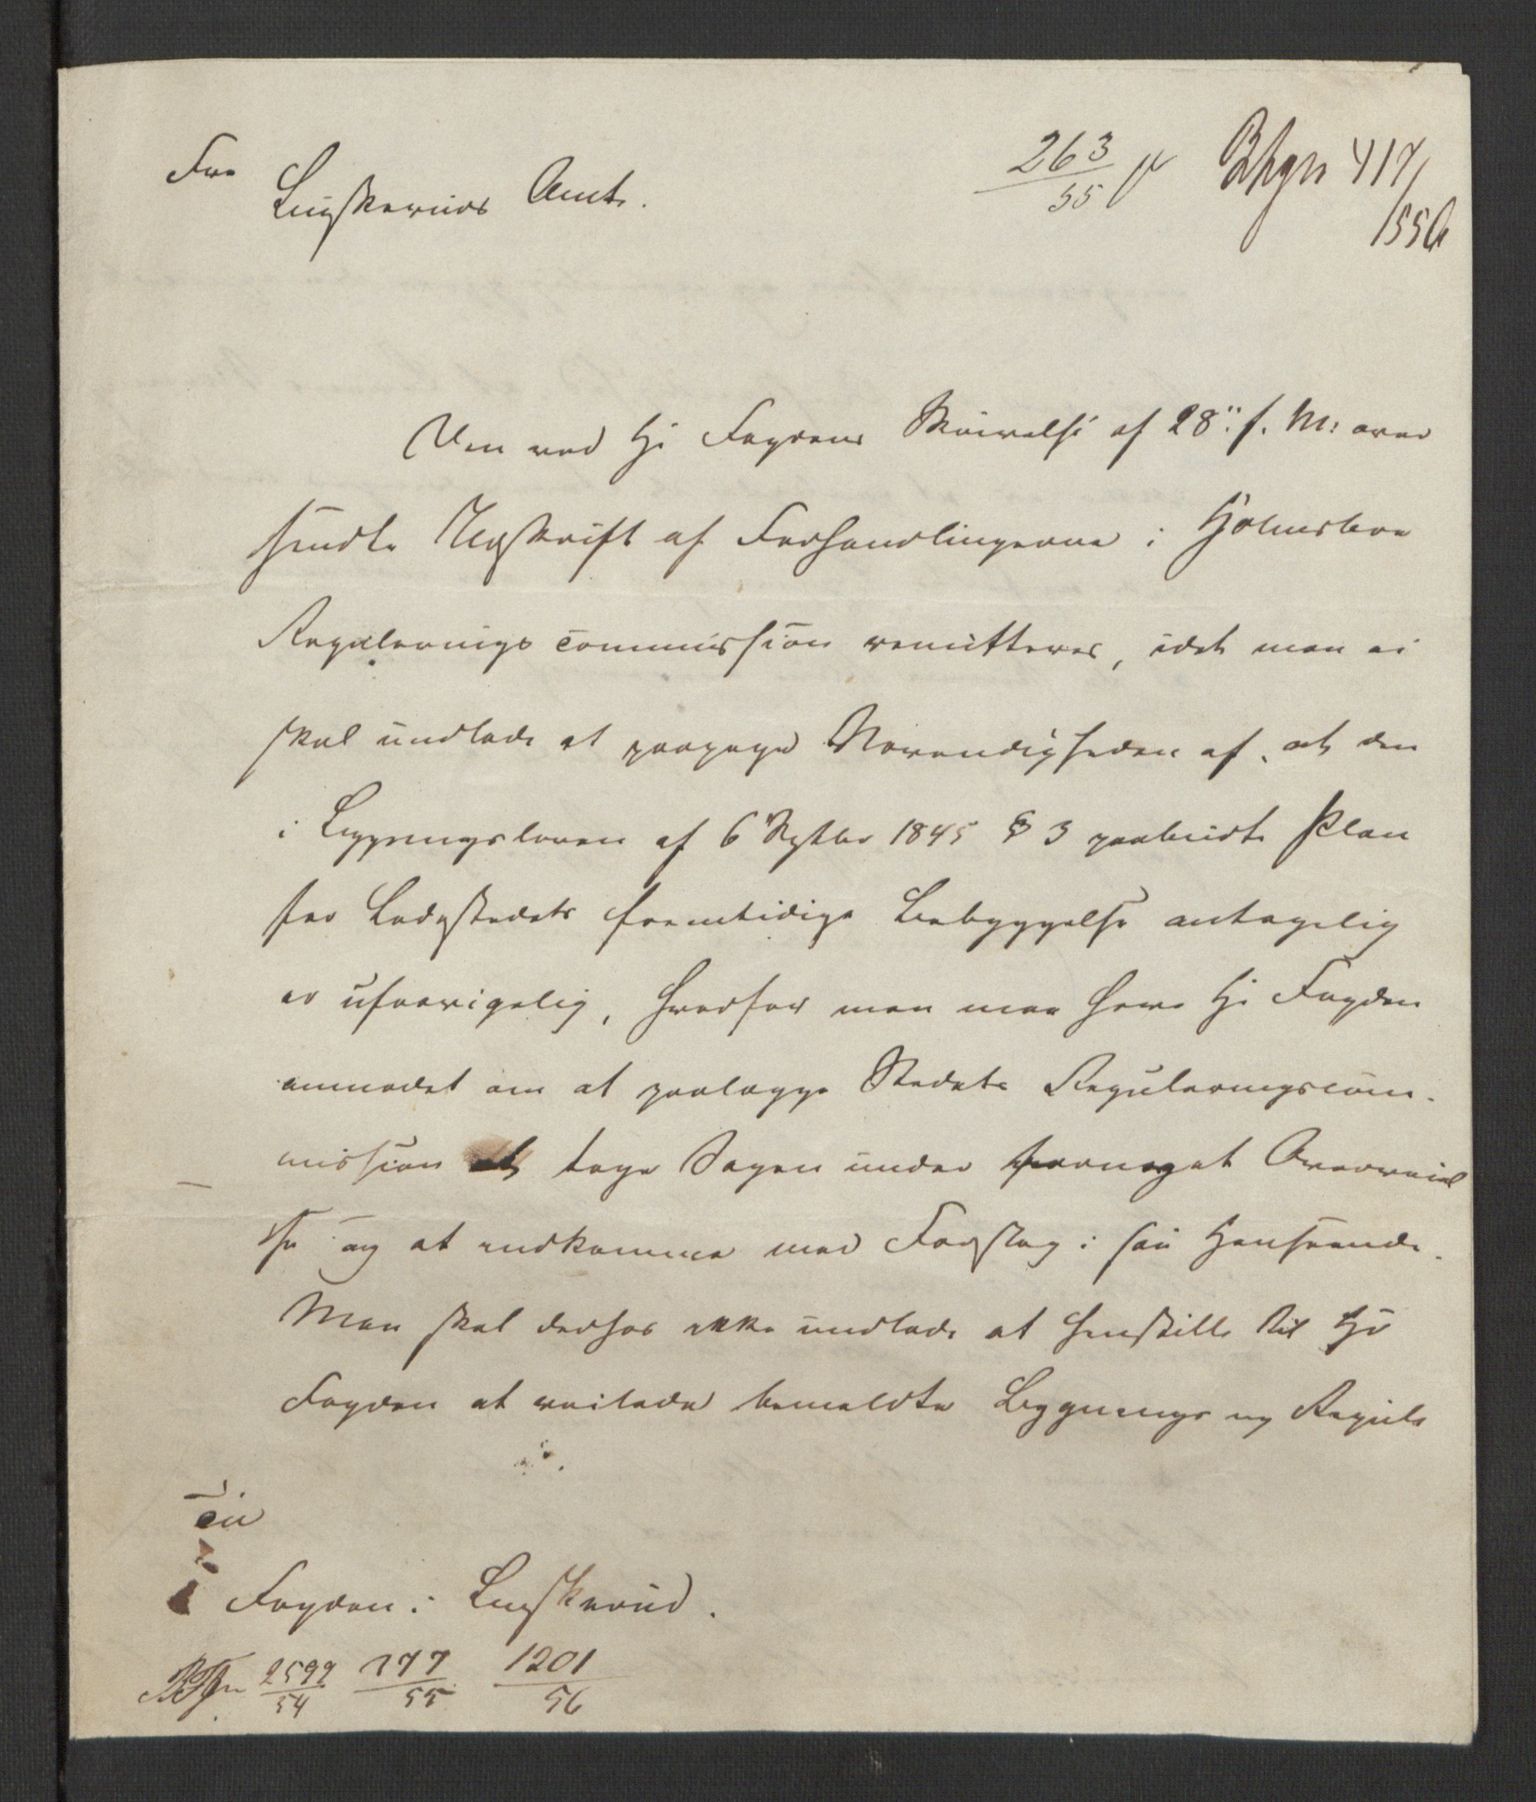 Fra
Buskeruds Amt.
263/55 Bhgn 417/1556
Den ved Hr Fogdens Skrivelse af 28de f. M. over
sendte Udskrift af Forhandlingerne i Holmsboe
Reguleringscommission remitteres, idet man ei
skal undlade at paapege Nødvendigheden af, at den
i Bygningsloven af 6 Septbr 1845 § 3 paabudte Plan
for Ladestedets fremtidige Bebyggelse antagelig
er ufravigelig, hvorfor man maa have Hr Fogden
anmodet om at paalægge Stedets Reguleringscom-
mission at tage Sagen under fornøget Overveiel
se og at indkomme med Forslag i saa Henseende.
Man skal derhos ikke undlade at henstille til Hr
Fogden at veilede bemeldte Bygnings og Regule
Til
Fogden i Buskerud.
2592/54 177/55 1201/56